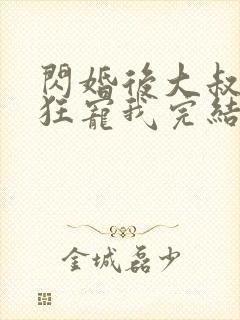 閃婚後大叔
狂寵我完結
金城磊少